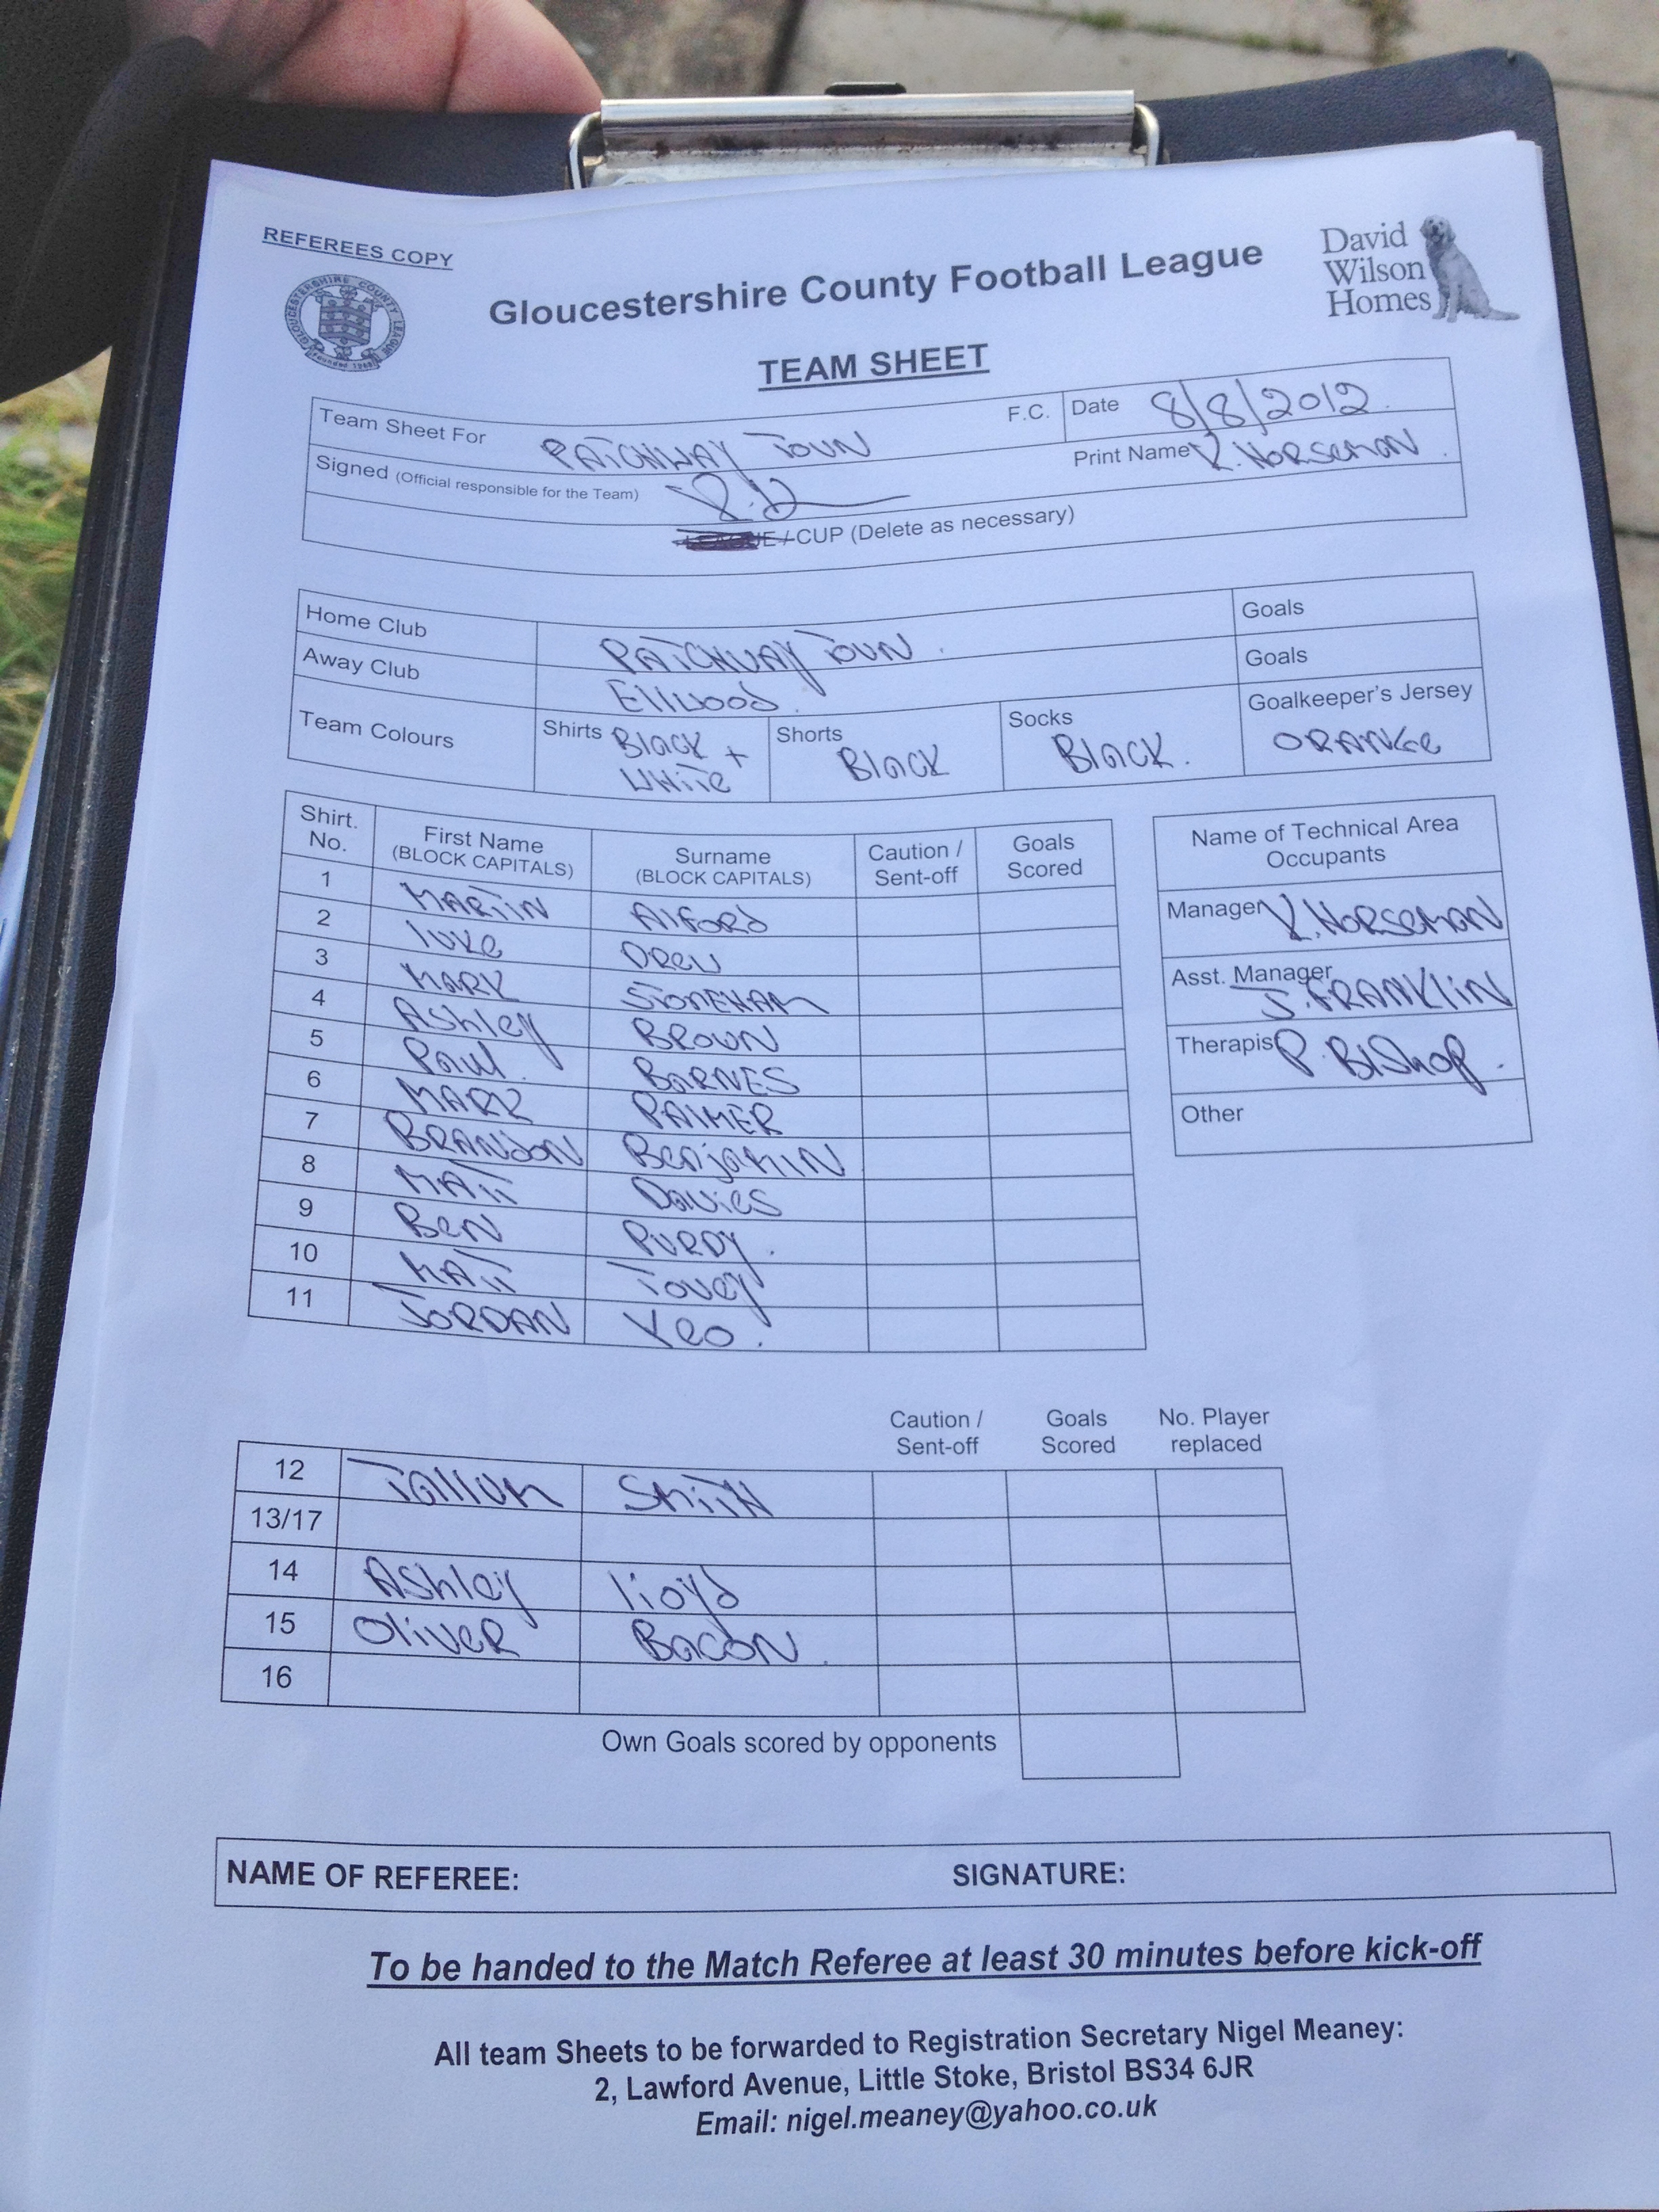 REFEREES COPY
GLOUCESTERSHIRE COUNTY LEAGUE
Founded 1968
Gloucestershire County Football League
David
Wilson
Homes
TEAM SHEET
Team Sheet For PATCHWAY TOWN F.C. Date 8/8/2012
Signed (Official responsible for the Team) Print Name R. HORSEMAN
LEAGUE / CUP (Delete as necessary)
Home Club PATCHWAY TOWN. Goals
Away Club Ellwood. Goals
Team Colours Shirts Black + White Shorts Black Socks Black. Goalkeeper's Jersey ORANGe
Shirt. No. First Name (BLOCK CAPITALS) Surname (BLOCK CAPITALS) Caution / Sent-off Goals Scored
1 MARTIN AlFORD
2 luke DREW
3 MARK STONEHAM
4 Ashley BROWN
5 Paul BARNES
6 MARK PALMER
7 BRANDON BenjaMIN
8 MATT Davies
9 BeN PURDY.
10 MATT Tovey
11 JORDAN Yeo.
Name of Technical Area Occupants
Manager R. HORSEMAN
Asst. Manager J. FRANKLIN
Therapist P. BIShop.
Other
Caution / Sent-off Goals Scored No. Player replaced
12 Tallum SMITH
13/17
14 Ashley lloyd
15 OliveR BACON.
16
Own Goals scored by opponents
NAME OF REFEREE: SIGNATURE:
To be handed to the Match Referee at least 30 minutes before kick-off
All team Sheets to be forwarded to Registration Secretary Nigel Meaney:
2, Lawford Avenue, Little Stoke, Bristol BS34 6JR
Email: nigel.meaney@yahoo.co.uk